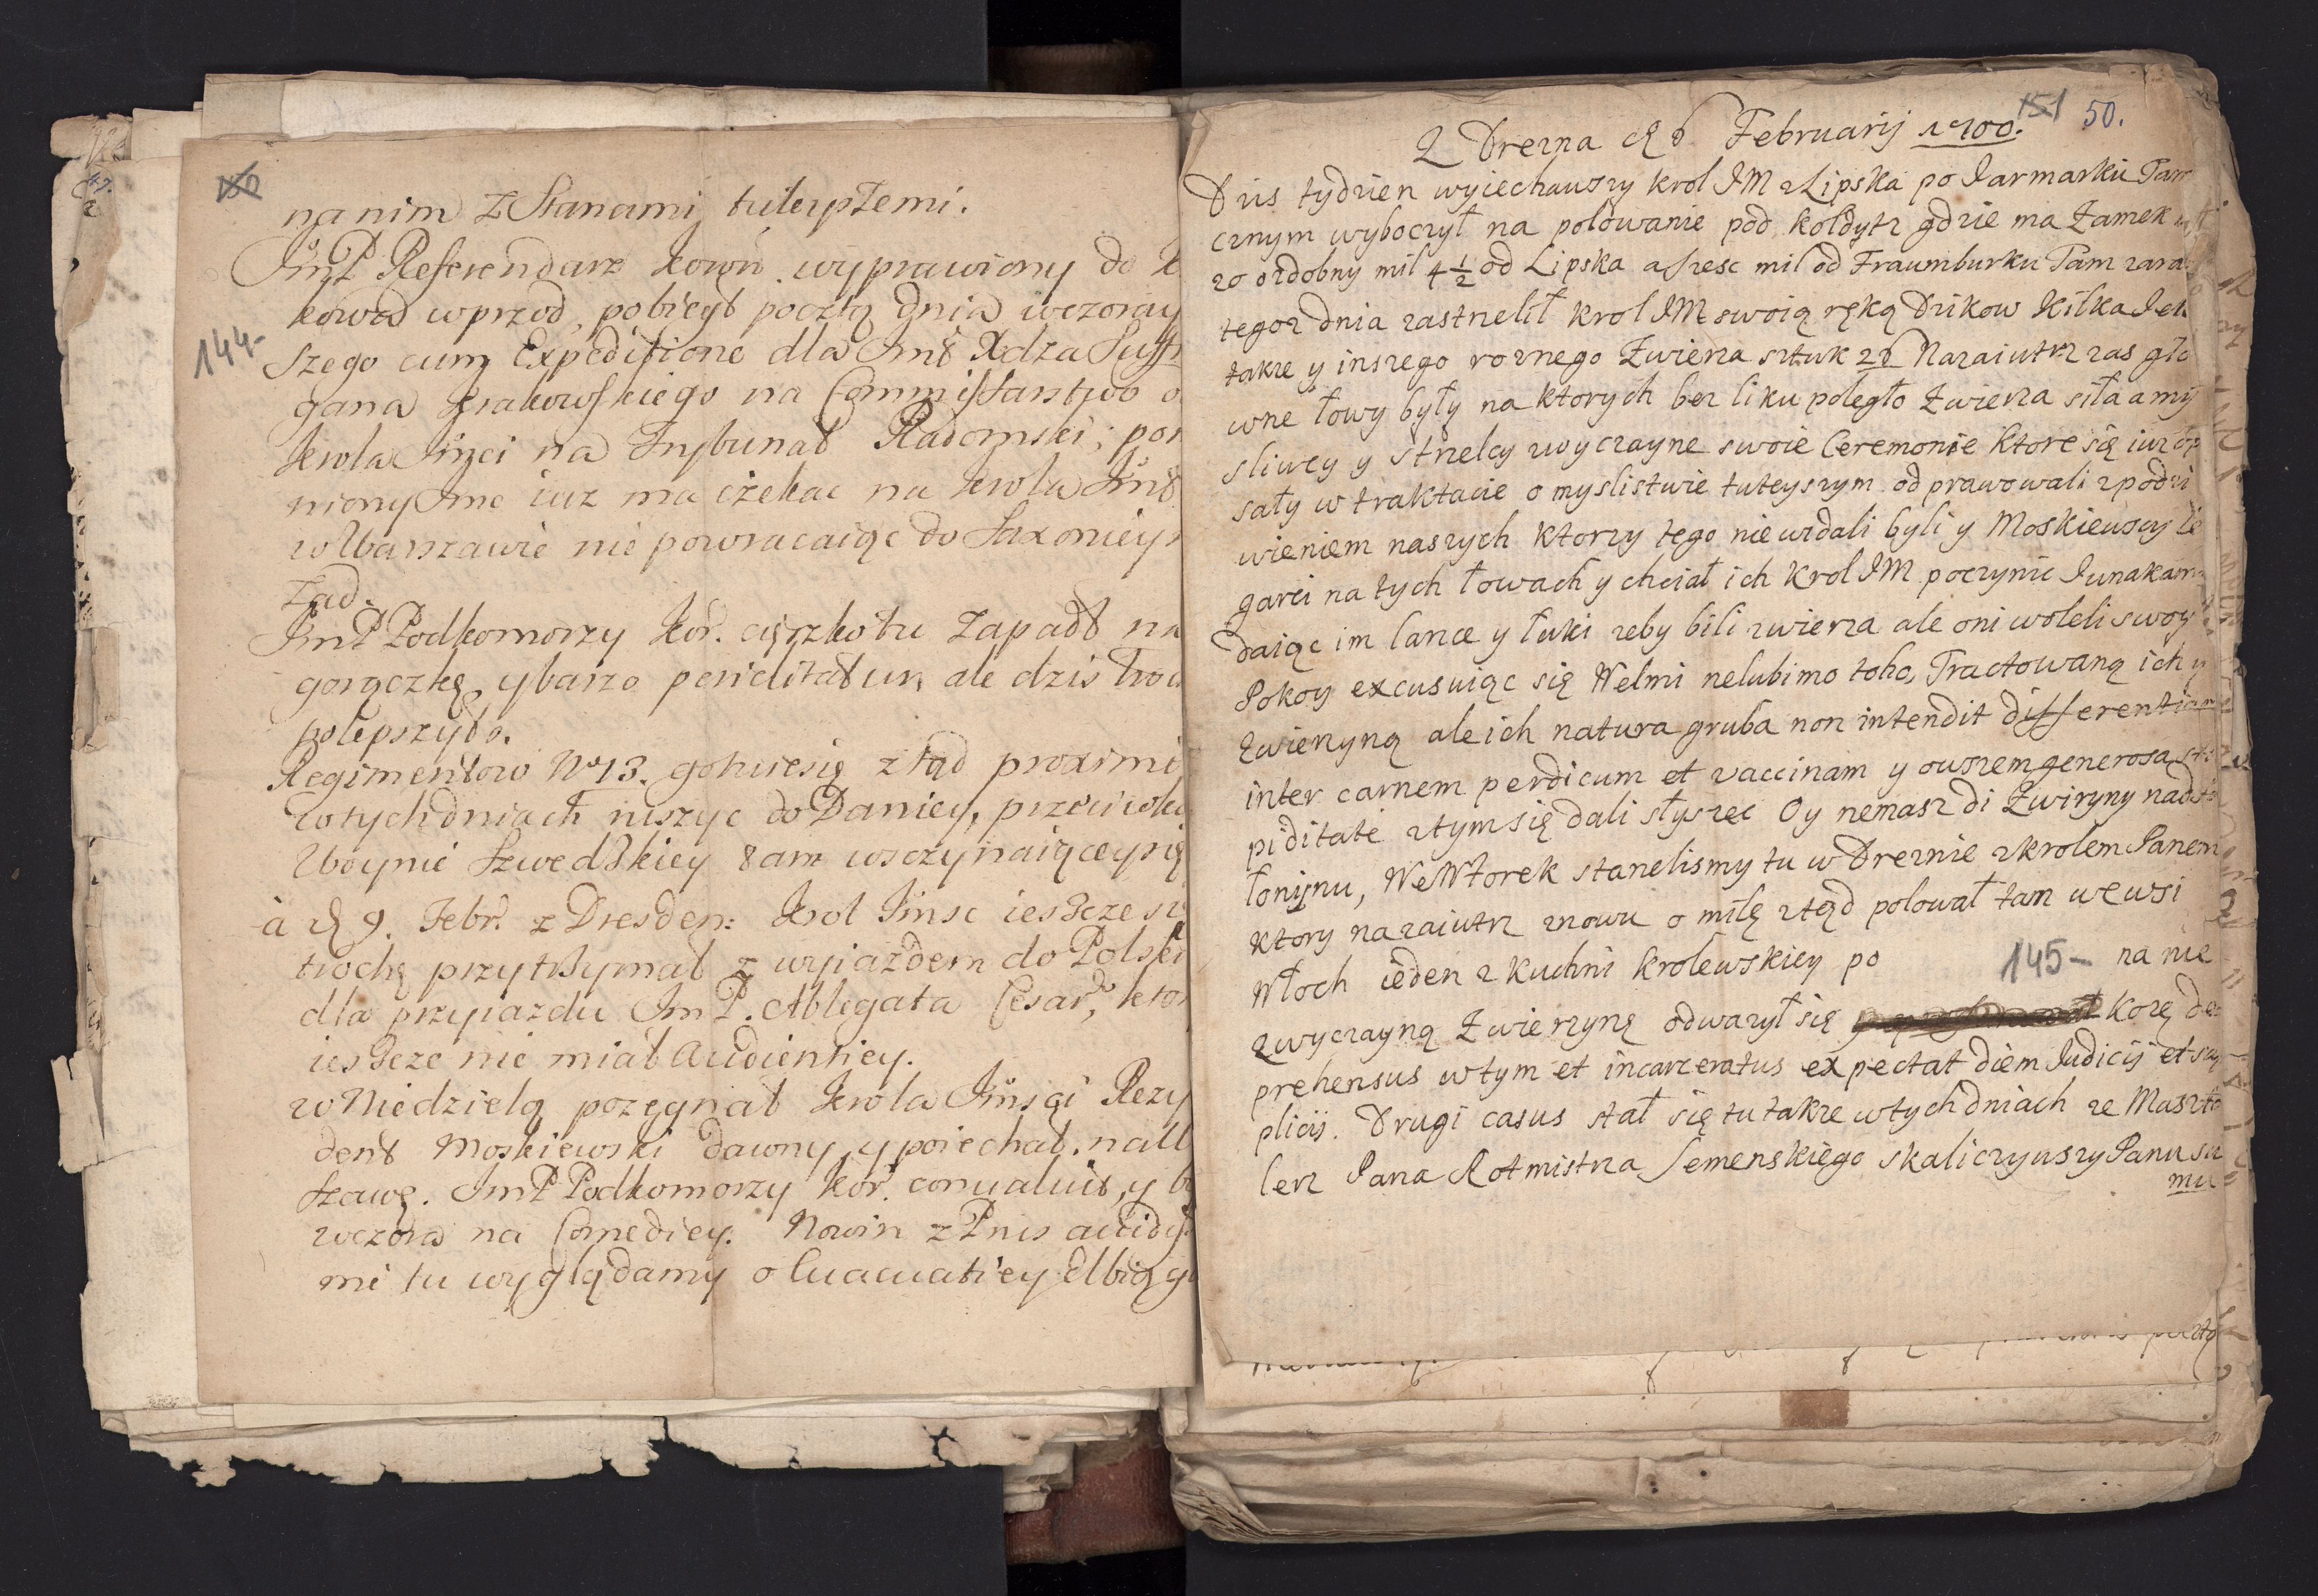 150
na nim z Stanami tuteyszemi.
ImP Referendarz Koron wyprawiony do K
kowa wprzod, pobiegł pocztą dnia wczoray
144-
szego cum Expeditione dla Imś Xdza Suff
gana Krakowskiego na Commissarstwo o
Krola Imści na Trybunał Radomski;
niony Ime iuz ma czekac na Krola Imś
w Warszawie nie powracaiąc do Saxoniey
zad.
ImP Podkomorzy Kor. cięszko tu zapadł na
gorączkę, y barzo periclitatur, ale dzis troc
polepszyło.
Regimentow No 13. gotuie się ztąd proximè
w tych dniach ruszyc do Daniey, przeciwko
Woynie Szwedzkiey tam wsczynaiącey się
à d 9. Febr. z Dresden: Krol Imsc ieszcze si
trochę przytrzymał z wyiazdem do Polski
dla przyiazdu ImP. Ablegata Cesar, ktor
ieszcze nie miał Audientiey.
w Niedzielą pozegnał Krola Imsci Rezy
dent Moskiewski dawny, y poiechał na W
szawę. ImP Podkomorzy Kor. convaluit, y b
wczora na Comediey. Nowin z Prus avidis
mi tu wyglądamy o Evacuatiey Elbiąg
151 50.
Z Drezna d 6 Februarij 1700.
Dzis tydzien wyiechawszy krol JM z Lipska po Jarmarku Tam
cznym wyboczył na polowanie pod koldytz gdzie ma Zamek
zo ozdobny mil 4½ od Lipska a szesc mil od Fraumburku Tam zara
tegoz dnia zastrzelił krol JM swoią ręką Dzikow kilka Jel
takze y inszego roznego Zwierza sztuk 26 Nazaiutrz zas gło
wne łowy były na ktorych bez liku poległo Zwierza siła a my
sliwcy y strzelcy zwyczayne swoie Ceremonie ktore się iuz op
sały w traktacie o myslistwie tuteyszym odprawowali z podzi
wieniem naszych ktorzy tego nie widali byli y Moskiewscy Le
gaci na tych łowach y chciał ich Krol JM poczynic Junakam
daiąc im lance y łuki zeby bili zwierza ale oni woleli swoy
Pokoy excusuiąc się Welmi nelubimo toho, Tractowaną ich y
Zwierzyną ale ich natura gruba non intendit differentiam
inter carnem perdicum et vaccinam y owszem generosa
piditate z tym się dali słyszec Oy nemasz di Zwiryny nad
łoninu, We Wtorek stanelismy tu w Dreznie z krolem Panem
ktory nazaiutrz znowu o milę ztąd polował tam we wsi
Włoch ieden z kuchni krolewskiey po 145- na nie
zwyczayną Zwierzynę odwazył się kozę de
prehensus w tym et incarceratus expectat diem Judicij et su
plicij. Drugi casus stał się tu takze w tych dniach ze Maszta
lerz Pana Rotmistrza Semenskiego skaliczywszy Panu su
mu